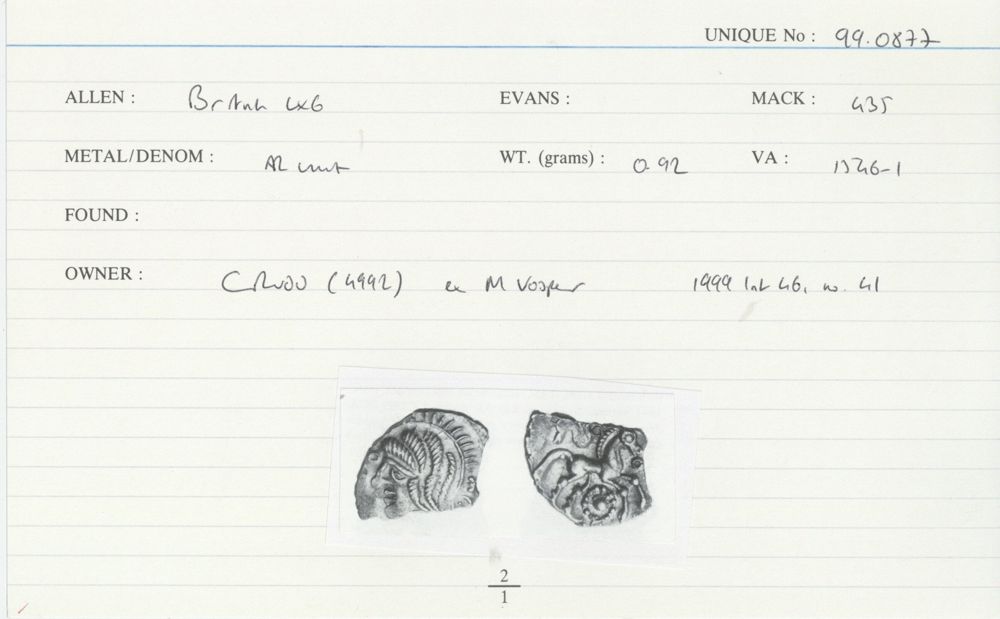 UNIQUE No : 99.0877
ALLEN : British LX6 EVANS : MACK : 435
METAL/DENOM : AR unit WT. (grams) : 0.92 VA : 1546-1
FOUND :
OWNER : C Rudd (4992) ex M Vosper 1999 list 46, no. 41
2
1